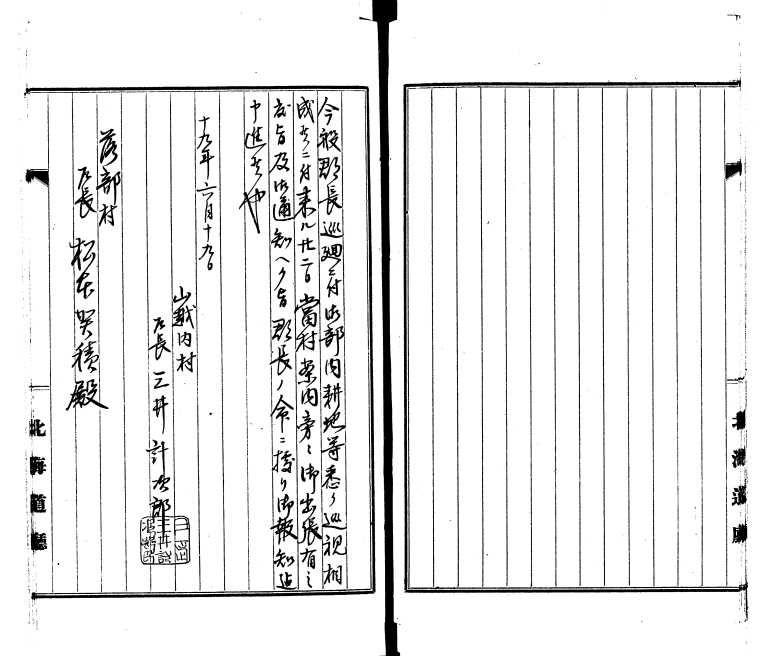 今般郡長巡廻ニ付御部内耕地等悉ク巡視相
成候ニ付来ル廿二日當村案内旁々御出張有之
度旨及御通知ヘク旨郡長ノ命ニ据リ御報知迠
申進候也
十九年六月十九日
山越内村
戸長 三井計次郎
落部村
戸長 松本 積殿
北海道廳
北海道廳